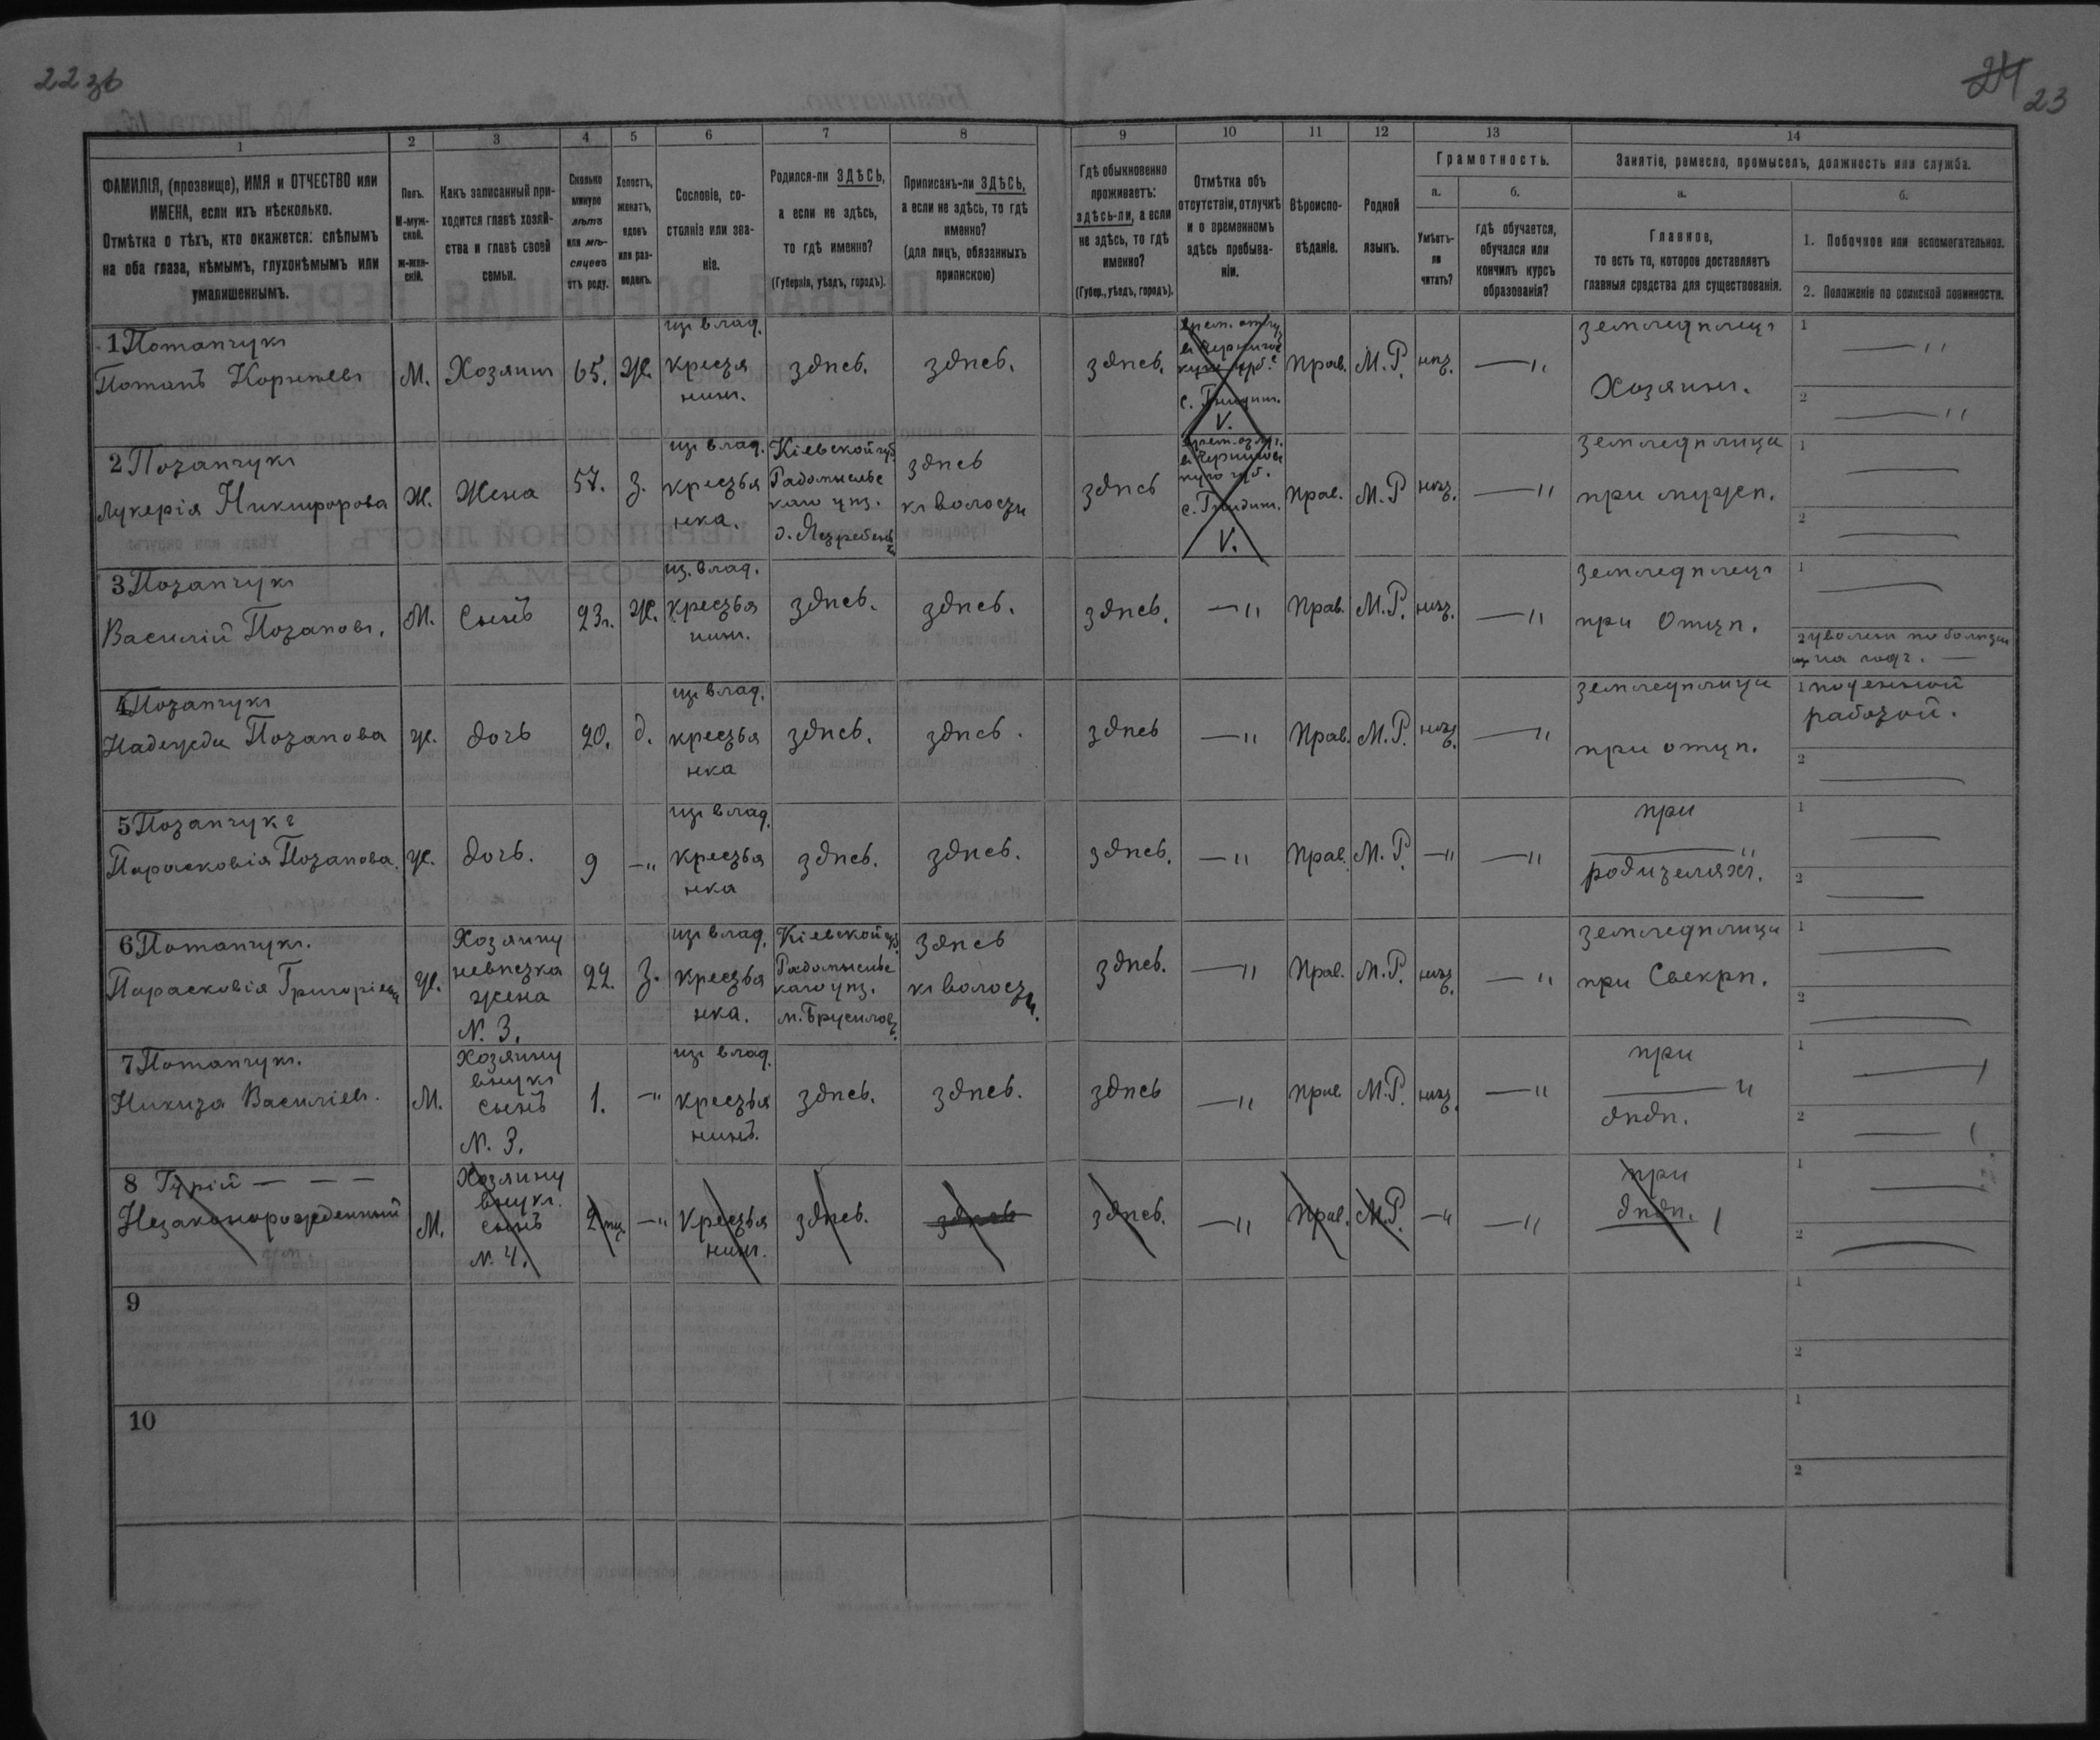 22 зв
24 23
1
ФАМИЛІЯ, (прозвище), ИМЯ и ОТЧЕСТВО или
ИМЕНА, если ихъ нѣсколько.
Отмѣтка о тѣхъ, кто окажется: слѣпымъ
на оба глаза, нѣмымъ, глухонѣмымъ или
умалишеннымъ.
2
Полъ.
М-муж-
ской.
ж-жен-
скій.
3
Какъ записанный при-
ходится главѣ хозяй-
ства и главѣ своей
семьи.
4
Сколько
минуло
лѣтъ
или мѣ-
сяцевъ
отъ роду.
5
Холостъ,
женатъ,
вдовъ
или раз-
веденъ.
6
Сословіе, со-
стояніе или зва-
ніе.
7
Родился-ли ЗДѢСЬ,
а если не здѣсь,
то гдѣ именно?
(Губернія, уѣздъ, городъ).
8
Приписанъ-ли ЗДѢСЬ,
а если не здѣсь, то гдѣ
именно?
(для лицъ, обязанныхъ
припискою)
9
Гдѣ обыкновенно
проживаетъ:
здѣсь-ли, а если
не здѣсь, то гдѣ
именно?
(Губер., уѣздъ, городъ).
10
Отмѣтка объ
отсутствіи, отлучкѣ
и о временномъ
здѣсь пребыва-
ніи.
11
Вѣроиспо-
вѣданіе.
12
Родной
языкъ.
13
Грамотность.
а.
Умѣетъ-
ли
читать?
б.
гдѣ обучается,
обучался или
кончилъ курсъ
образованія?
14
Занятіе, ремесло, промыселъ, должность или служба.
а.
Главное,
то есть то, которое доставляетъ
главныя средства для существованія.
б.
1. Побочное или вспомогательное.
2. Положеніе по воинской повинности.
1 Потапчукъ
Потапъ Корнѣевъ
М.
Хозяинъ
65.
Ж.
изъ влад.
крестья
нинъ.
здѣсь.
здѣсь.
здѣсь.
V.
Прав.
М. Р.
нѣт.
— "
земледѣлецъ
Хозяинъ.
1 — "
2 — "
2 Потапчукъ
Лукерія Никифорова
Ж.
Жена
57.
З.
изъ влад.
крестья
нка.
Кіевской губ.
Радомысльс
каго уѣз.
здѣсь
къ волости
здѣсь
V.
Прав.
М. Р
нѣт.
— "
земледѣлица
при мужѣ.
1 —
2 —
3 Потапчукъ
Василій Потаповъ.
М.
Сынъ
23 г.
Ж.
из. влад.
крестья
нинъ.
здѣсь.
здѣсь.
здѣсь.
— "
Прав.
М. Р.
нѣт.
— "
земледѣлецъ
при Отцѣ.
1 —
2
на годъ. —
4 Потапчукъ
Надежда Потапова
Ж.
дочь
20.
д.
изъ влад.
крестья
нка
здѣсь.
здѣсь.
здѣсь
— "
Прав.
М. Р.
нѣт.
— "
земледѣлица
при отцѣ.
1 поденной
работой.
2 —
5 Потапчукъ
Парасковія Потапова.
Ж.
дочь.
9
— "
изъ влад.
крестья
нка
здѣсь.
здѣсь.
здѣсь.
— "
Прав.
М. Р.
— "
— "
при
родителяхъ.
1 —
2 —
6 Потапчукъ.
Парасковія Григоріева
Ж.
Хозяину
невѣстка
жена
N. 3.
22.
З.
изъ влад.
крестья
нка.
Кіевской губ.
Радомысльс
каго уѣз.
м. Брусиловъ.
здѣсь
къ волости.
здѣсь.
— "
Прав.
М. Р.
нѣт.
— "
земледѣлица
при Свекрѣ.
1 —
2 —
7 Потапчукъ.
Никита Васильевъ.
М.
Хозяину
внукъ
сынъ
N. 3.
1.
— "
изъ влад.
крестья
нинъ.
здѣсь.
здѣсь.
здѣсь
— "
Прав.
М. Р.
нѣт.
— "
при
— "
дѣдѣ.
1 —
2 —
8 Гурій — — —
Незаконорожденный
М.
Хозяину
внукъ.
сынъ
N. 4.
2 мѣ.
— "
Крестья
нинъ.
здѣсь.
здѣсь
здѣсь.
— "
Прав.
М. Р.
— "
— "
при
дѣдѣ.
1 —
2 —
9
1
2
10
1
2